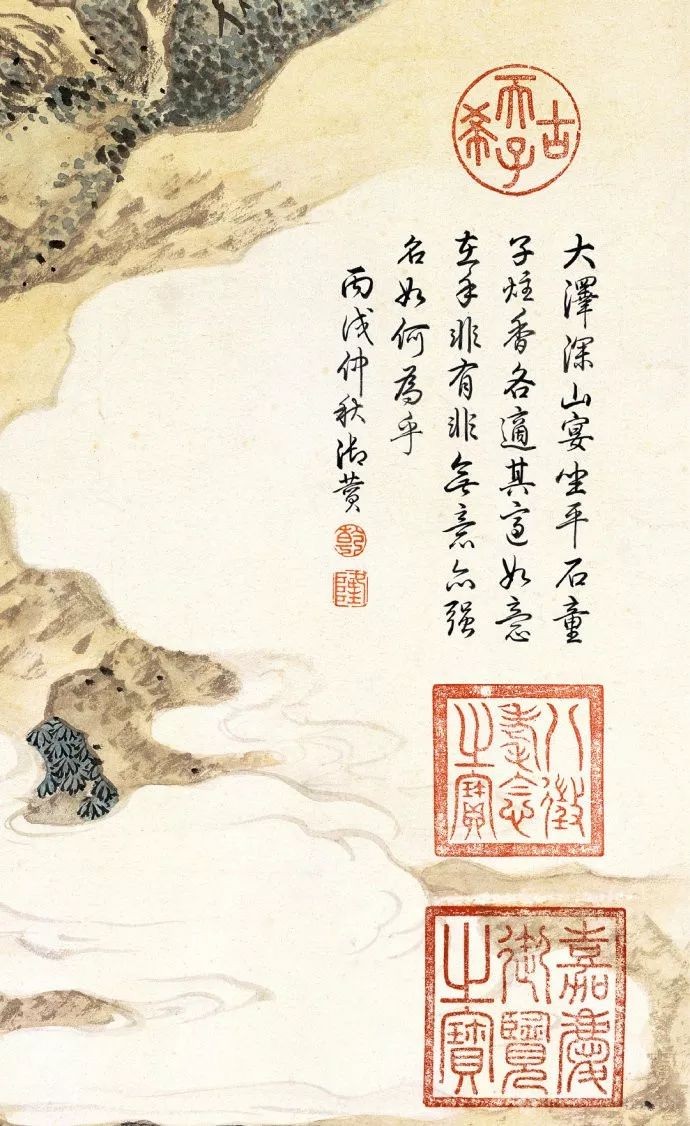 古希天子
大澤深山宴坐平石童
子炷香各適其適如意
在手非有非無意亦强
名如何為乎
丙戌仲秋御贊
乾
隆
八徵耄念之寶
嘉慶御覽之寶